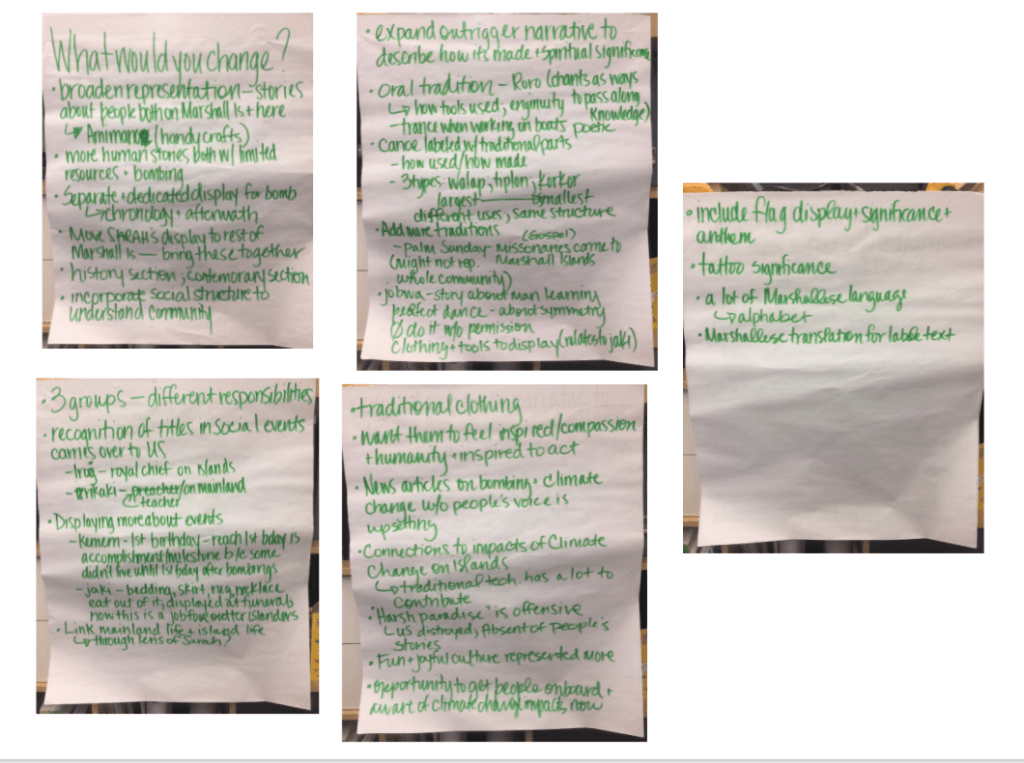 What would you change?
• broaden representation – stories
about people both on Marshall Is + here
↳ Amimano (handycrafts)
• more human stories both w/ limited
resources + bombing
• Separate + dedicated display for bomb
↳ chronology + aftermath
• Move SARAH's display to rest of
Marshall Is — bring these together
• history section, contemporary section
• incorporate social structure to
understand community
• expand outrigger narrative to
describe how its made + spiritual significance
• oral tradition – Roro (chants as ways
↳ how tools used, enginuity to pass along
knowledge)
– trance when working on boats poetic
• Canoe labeled w/ traditional parts
– how used/how made
– 3 types – walap, tiplon, korkor
largest smallest
different uses, same structure
• Add more traditions (Gospel)
– Palm Sunday missonaries came to
(might not rep. Marshall Islands
whole community)
• jobwa – story about man learning
perfect dance – about symmetry
do it w/o permission
Clothing + tools to display (relates to jaki)
• 3 groups – different responsibilities
• recognition of titles in social events
carries over to US
– Iroij – royal chief on islands
– rrikaki – preacher/on mainland
teacher
• Displaying more about events
– Kemem – 1st birthday – reach 1st bday is
accomplishment/milestone b/c some
didn't live until 1st bday after bombings
– jaki – bedding, skirt, rug, necklace
eat out of it, displayed at funerals
now this is a job for outter islanders
• Link mainland life + island life
↳ through lens of Sarah?
• traditional clothing
• want them to feel inspired/compassion
+ humanity + inspired to act
• News articles on bombing + climate
change w/o people's voice is
upsetting
• Connections to impacts of Climate
Change on Islands
↳ traditional tech. has a lot to
contribute
• "Harsh paradise" is offensive
↳ US distroyed, Absent of people's
stories
• Fun + joyful culture represented more
• opportunity to get people onboard +
aware of climate change impacts, now
• include flag display + significance +
anthem
• tattoo significance
• a lot of Marshallese language
↳ alphabet
• Marshallese translation for lable text